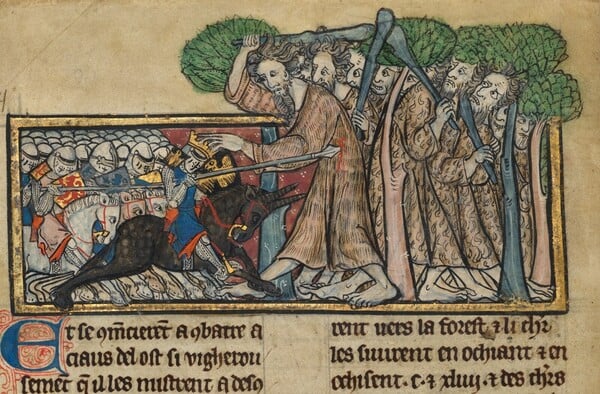 Et se ꝯmēcierēt a ꝯbatre a
ciaus del ost si vigherou
semēt q̄ il les mistrent a desꝯ
rent uers la forest ⁊ li chr̄
les suuirent en ochiant ⁊ en
ochisent .c. ⁊ xliiij. ⁊ des chr̄s